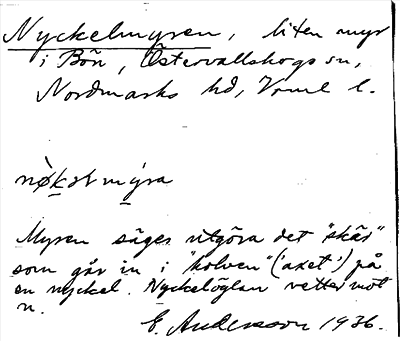 Nyckelmyren, liten myr
i Bön, Östervallskogs sn,
Nordmarks hd, Vrml l.
Myren säges utgöra det "skär"
som går in i "kolven" ('axet') på
en nyckel. Nyckelöglan vetter mot
n.
E. Andersson 1936.